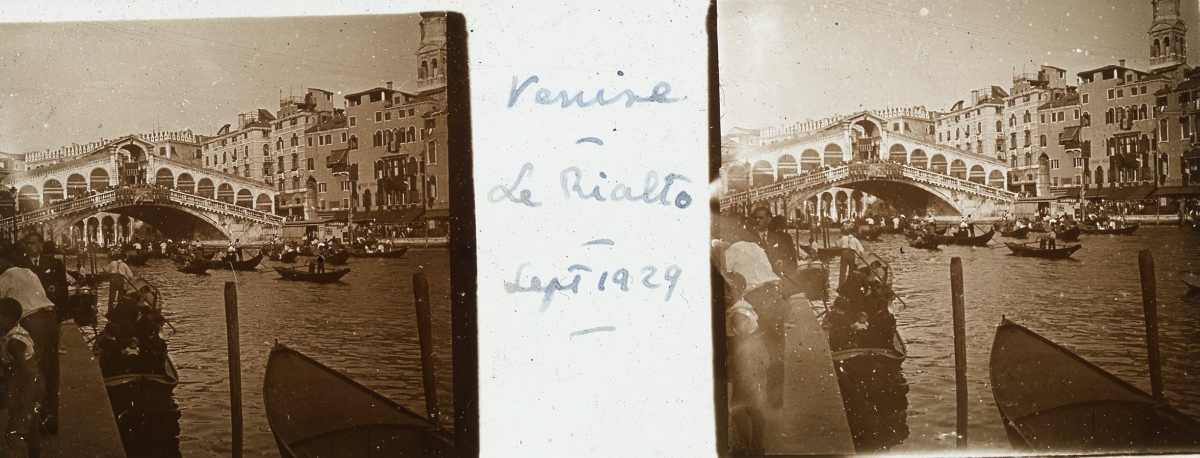 Venise
Le Rialto
Sept 1929